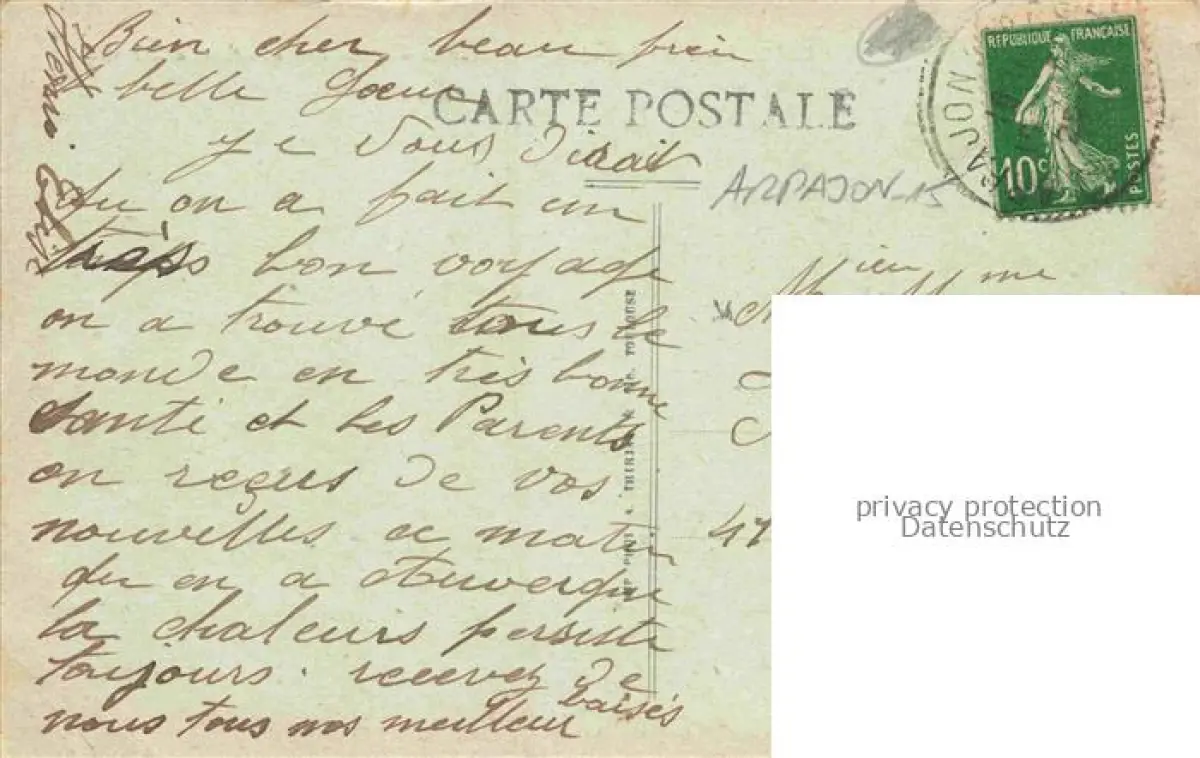 Bien cher beau frèr
belle Soeur
CARTE POSTALE
REPUBLIQUE FRANÇAISE
10c POSTES
RPAJON
Je vous dirait
ARPAJON-15
qu on a fait un
très bon voyage
on a trouvé tous le
monde en très bonne
santé et les Parents
on reçus de vos
nouvelles ce matin
qu en a Auvergne
la chaleurs persiste
toujours. recevez de
nous tous nos meilleur
baisés
Mme
TOULOUSE
41
privacy protection
Datenschutz